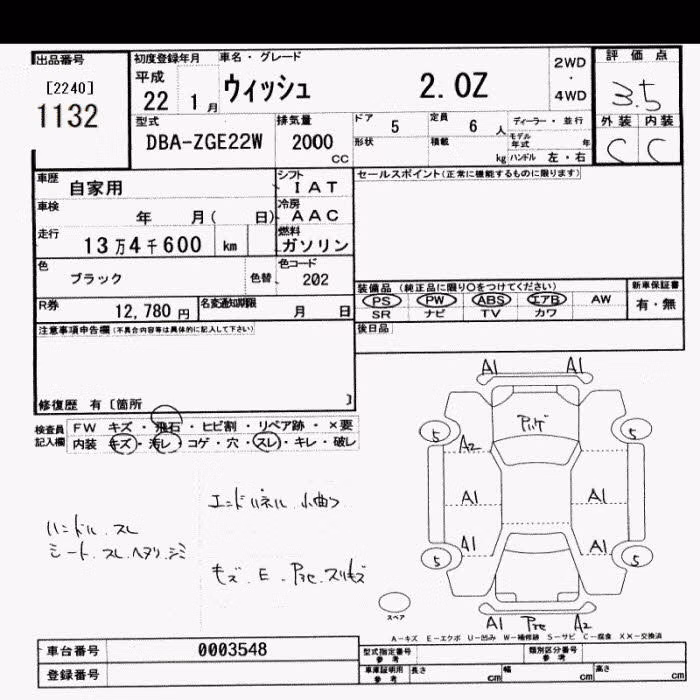 出品番号
[2240]
1132
初度登録年月
平成
22 1 月
車名・グレード
ウィッシュ 2.0Z
2WD
・
4WD
評価点
3.5
外装 内装
C C
型式
DBA-ZGE22W
排気量
2000
CC
ドア 5
定員 6 人
ディーラー・並行
形状
積載 kg
モデル年式 年
ハンドル 左・右
車歴 自家用
シフト
IAT
セールスポイント(正常に機能するものに限ります)
車検 年 月( 日)
冷房
AAC
走行 13万4千600 km
燃料
ガソリン
色 ブラック 色替
色コード
202
装備品(純正品に限り○をつけてください)
新車保証書
PS PW ABS エアB AW
SR ナビ TV カワ
有・無
R券 12,780 円
名変通知期限 月 日
後日品
注意事項申告欄(不具合内容等は具体的に記入して下さい)
修復歴 有 [箇所 ]
検査員
記入欄
FW キズ・飛石・ヒビ割・リペア跡・×要
内装 キズ・汚レ・コゲ・穴・スレ・キレ・破レ
A1 A1
5 5
A2
A1 A1
A1 A1
5 5
A1 A2
エンドパネル 小曲り
ハンドル スレ
シート スレ ヘタリ シミ
スペア
A-キズ E-エクボ U-凹み W-補修跡 S-サビ C-腐食 XX-交換済
車台番号 0003548
登録番号
型式指定番号
参考
類別区分番号
参考
車庫証明用
参考
長さ cm
幅 cm
高さ cm